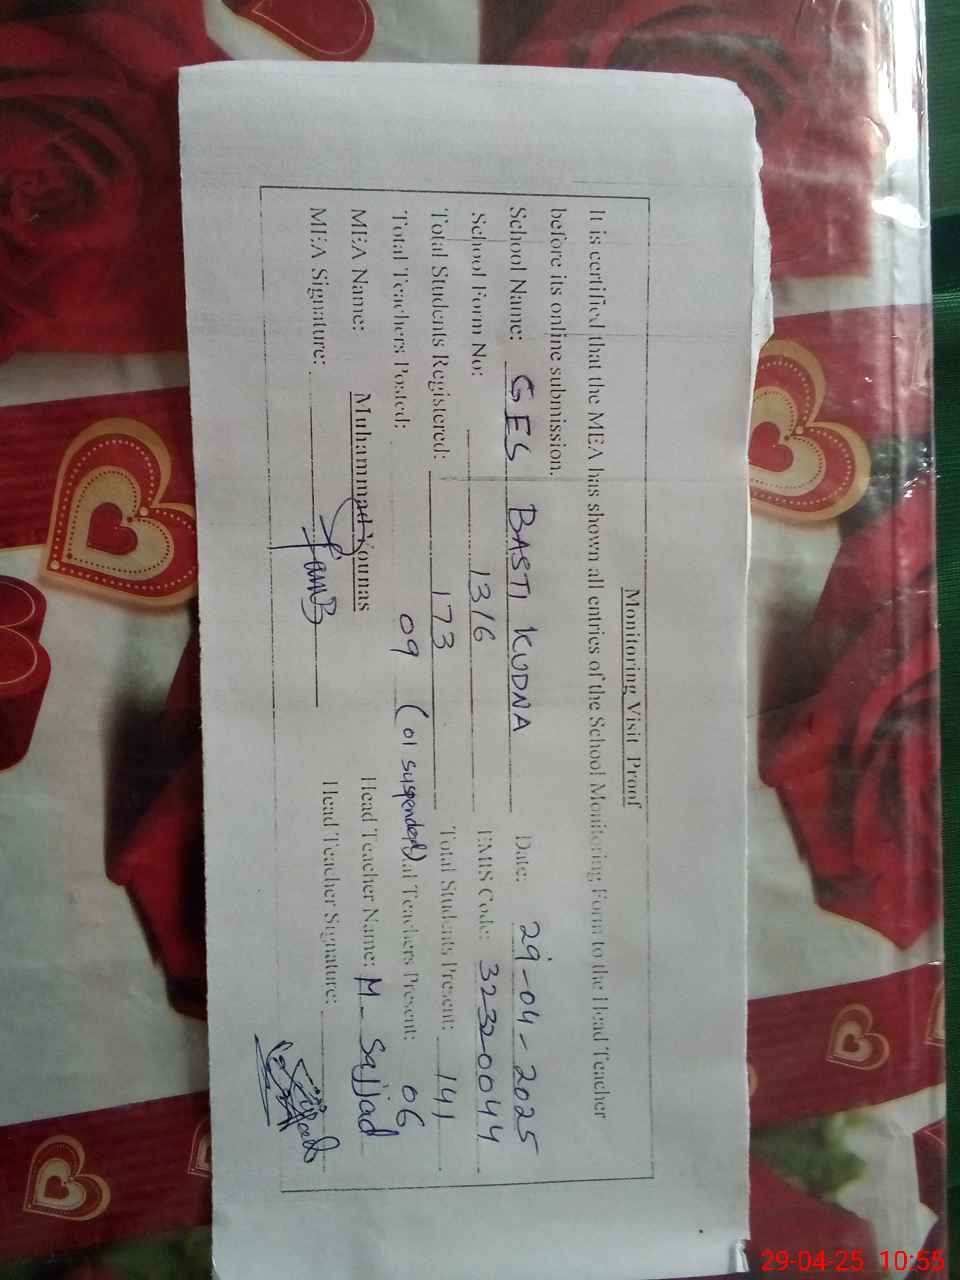 Monitoring Visit Proof
It is certified that the MEA has shown all entries of the School Monitoring Form to the Head Teacher
before its online submission.
School Name: GES BASTI KUDNA Date: 29-04-2025
School Form No: 1316 EMIS Code: 32320044
Total Students Registered: 173 Total Students Present: 141
Total Teachers Posted: 09 (01 suspended) al Teachers Present: 06
MEA Name: Muhammad Younas Head Teacher Name: M. Sajjad
MEA Signature: Head Teacher Signature:
29-04-25 10:55